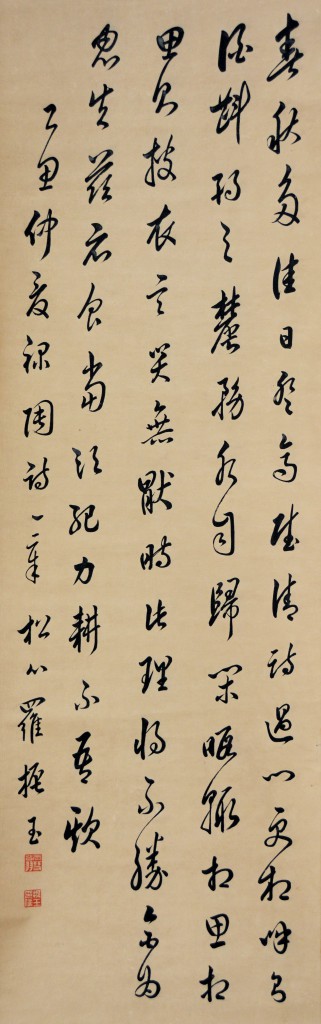 春秋多佳日登高賦清詩過門更相呼有
酒斟酌之農務各自歸閒暇輒相思相
思則披衣言笑無厭時此理將不勝為
忽去茲衣食當須紀力耕不吾欺
仲夏錄陶詩一章松羅振玉